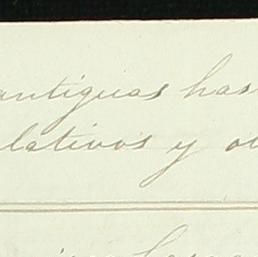 antiguas has
lativos y ot